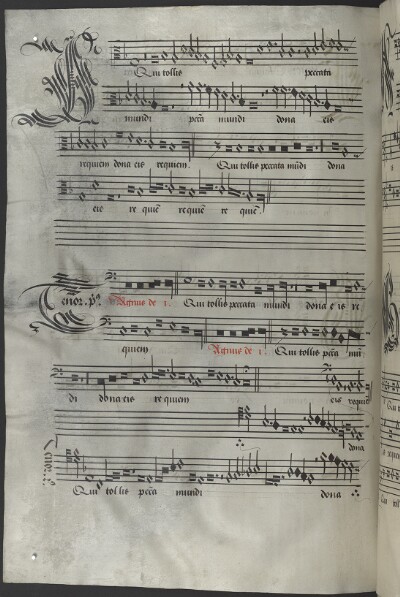 Qui tollis peccata
mundi pctā mundi dona eis
requiem dona eis requiem. Qui tollis peccata mūdi dona
eis re quiē requiē re quiē.
Tenor. pº. Agnus de i. Qui tollis peccata mundi dona e is re
quiem Agnus de i. Qui tollis pctā mū
di dona eis re quiem eis requiē
dona
Qui tol lis pctā mundi dona